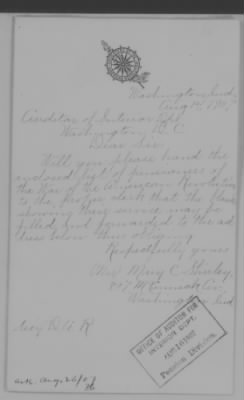 Washington, Ind.
Aug 14, 1907
Interior Dept
Washington, D.C.
Dear Sir.
Will you please hand the
enclosed list of pensioners of
the War of the American Revolution
to the proper clerk that the
showing their service may be
filled and forwarded to the ad-
dress
Respectfully yours
Mrs Mary C. Shirley
807 McCormick Ave
Washington Ind
OFFICE OF AUDITOR FOR
INTERIOR DEPT.
AUG 16 1907
Pension Division.
D. A. R.